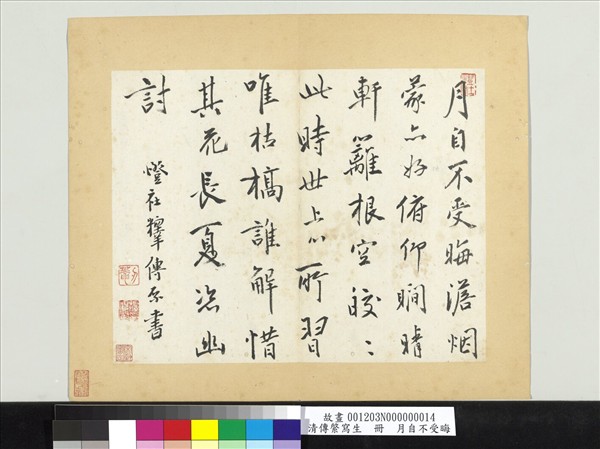 月自不受晦澹烟
蒙亦好俯仰瞯晴
軒籬根空皎〻
此時世上心所習
唯枯槁誰解惜
其花長夏恣幽
討
燈社 傳綮書
故畫 001203N000000014
清傳綮寫生 冊 月自不受晦